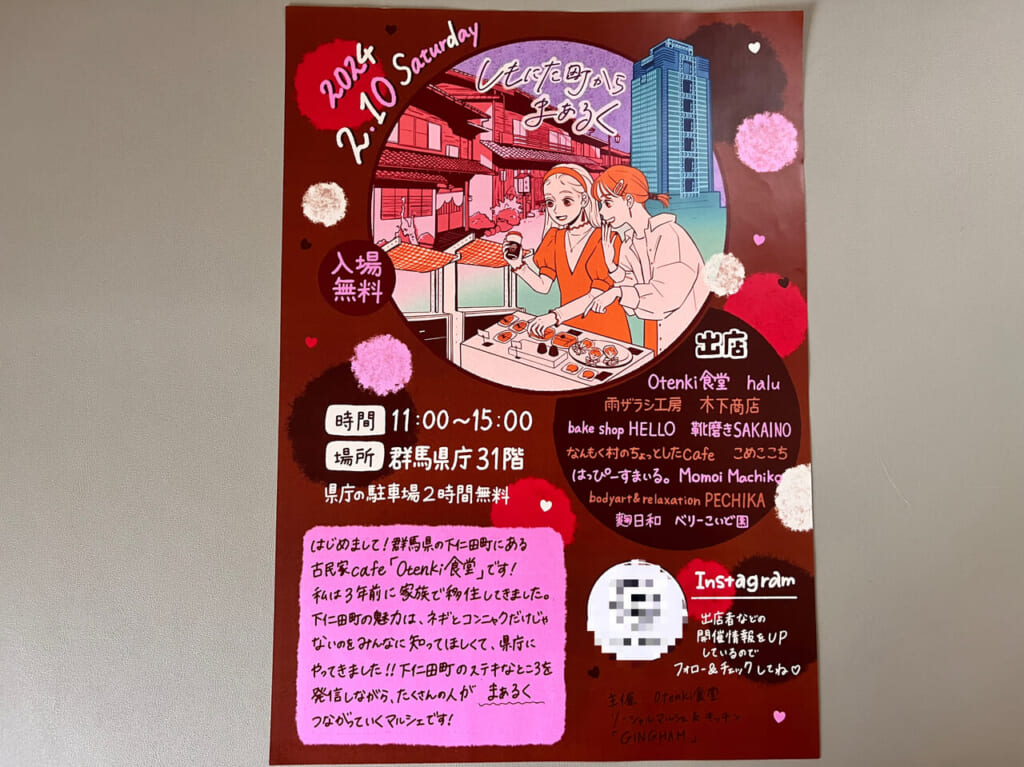 2024
2.10 Saturday
しもにた町から
まぁるく
入場
無料
時間 11:00〜15:00
場所 群馬県庁31階
県庁の駐車場2時間無料
出店
Otenki食堂 halu
雨ザラシ工房 木下商店
bake shop HELLO 靴磨きSAKAINO
なんもく村のちょっとしたcafe こめここち
はっぴーすまいる。 Momoi Machika
bodyart&relaxation PECHIKA
麹日和 ベリーこいど園
はじめまして!群馬県の下仁田町にある
古民家cafe「Otenki食堂」です!
私は3年前に家族で移住してきました。
下仁田町の魅力は、ネギとコンニャクだけじゃ
ないのをみんなに知ってほしくて、県庁に
やってきました!!下仁田町のステキなところを
発信しながら、たくさんの人が まぁるく
つながっていくマルシェです!
Instagram
出店者などの
開催情報をUP
しているので
フォロー&チェックしてね♡
主催 Otenki食堂
ソーシャルマルシェ&キッチン
「GINGHAM」